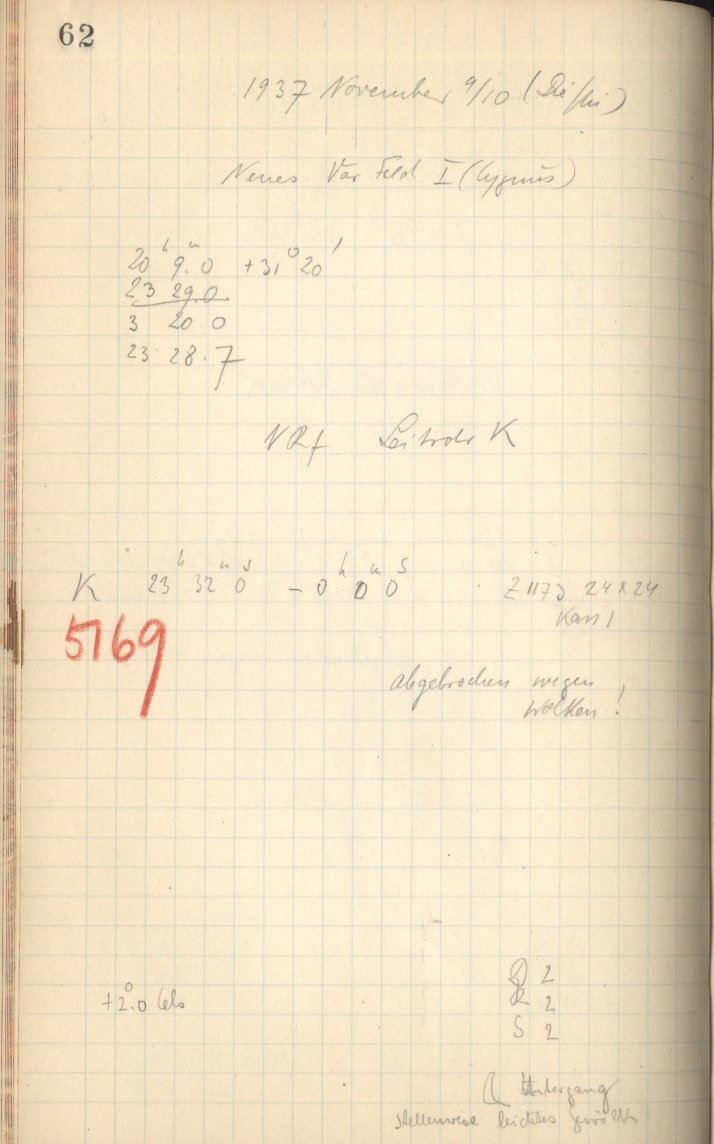 62
1937 November 9/10 (Di/Mi)
Neues Var Feld I (Cygnus)
20h 9m.0 +31° 20'
23 29.0
3 20.0
23 28.7
NRf Leitrohr K
K 23h 32m 0s – 0h 0m 0s Z 1173 24 x 24
Kass 1
5169
abgebrochen wegen
Wolken!
+2°.0 Cels
D 2
R 2
S 2
☾ Untergang
stellenweise leichtes Gewölk